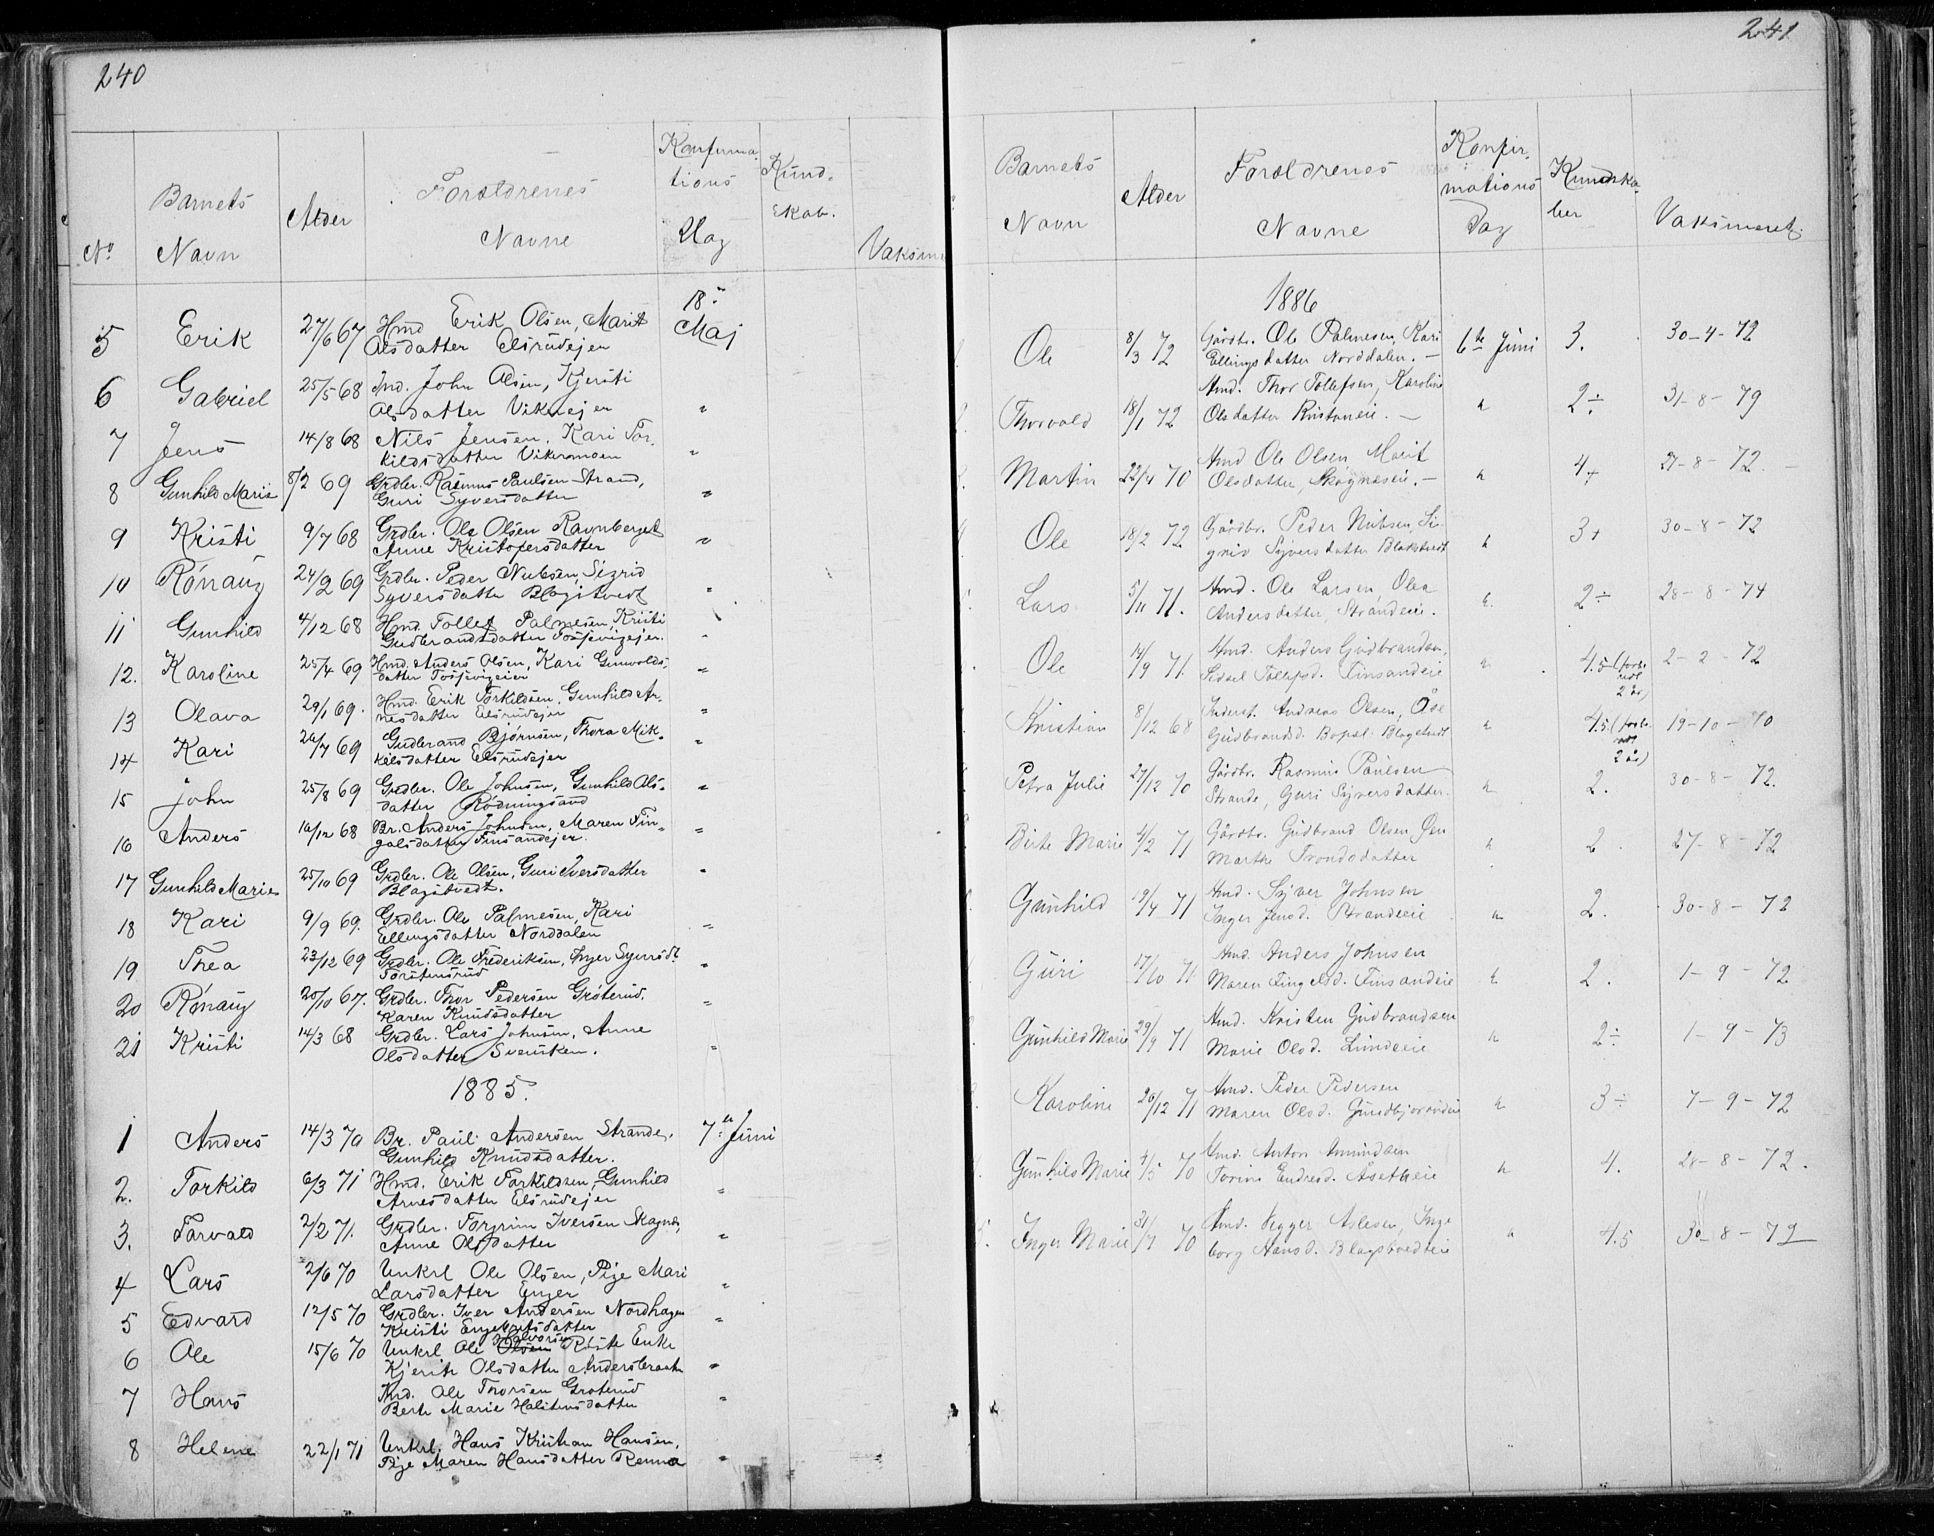 240
No
Barnets Navn
Alder
Forældrenes Navne
Konfirmations Dag
Kundskab.
Vaksin
5 Erik 27/6 67 Hmd Erik Olsen, Marit 18de Maj
Olsdatter Elsrudejer
6 Gabriel 25/5 68 Ind. John Olsen, Kjersti
Olsdatter Vikejer "
7 Jens 14/8 68 Nils Jensen, Kari Tor-
kildsdatter Vikermoen "
8 Gunhild Marie 8/2 69 Grdbr. Rasmus Paulsen Strand,
Guri Syversdatter "
9 Kristi 9/7 68 Grdbr. Ole Olsen Ravnberget
Anne Kristofersdatter "
10 Rønaug 24/2 69 Grdbr. Peder Nubsen, Sigrid
Syversdatter Blagstvedt "
11 Gunhild 4/12 68 Hmd. Tollef Palmesen, Kristi
Gudbrandsdatter "
12. Karoline 25/4 69 Hmd. Anders Olsen, Kari Gunvolds-
datter "
13 Olava 29/1 69. Hmd. Erik Torkildsen, Gunhild Ar-
nesdatter Elsrudejer "
14 Kari 26/7 69 Gudbrand Bjørnsen, Thora Mik-
kelsdatter Elsrudejer "
15 John 25/8 69 Grdbr. Ole Johnsen, Gunhild Ols-
datter Rødningsand "
16 Anders 16/12 68 Br. Anders Johnsen, Maren Fin-
galsdatter Finsandejer. "
17 Gunhild Marie 25/10 69 Grdbr. Ole Olsen, Guri Iversdatter
Blagstvedt. "
18 Kari 9/9 69. Grdbr. Ole Palmesen, Kari
Ellingsdatter Norddalen "
19 Thea 23/12 69 Grdbr. Ole Frederiksen, Inger Syversdt.
Torstensrud "
20 Rønaug 20/10 67. Grdbr. Thor Pedersen Grøterud,
Karen Knudsdatter "
21 Kristi 14/3 68 Grdbr. Lars Johnsen, Anne
Olsdatter Svensken. "
1885.
1 Anders 14/3 70 Br. Paul Andersen Strande, 7de Juni
Gunhild Knudsdatter.
2. Torkild 6/3 71 Hmd. Erik Torkildsen, Gunhild
Arnesdatter Elsrudejer "
3. Torvald 2/2 71. Grdbr. Torgrim Iversen Skagnes,
Anne Olsdatter "
4 Lars 2/6 70 Unkrl Ole Olsen, Pige Mari
Larsdatter Enger "
5 Edvard 12/5 70 Grdbr. Iver Andersen Nordhagen
Kristi Engebretsdatter "
6 Ole 15/6 70 Unkrl Ole Olsen Halvorsen Røste Enke
Kjersti Olsdatter Andersbraaten "
7 Hans Ind. Ole Thorsen Grøterud
Berte Marie Halstensdatter "
8 Helene 22/1 71 Unkrl. Hans Kristian Hansen,
Pige Maren Hansdatter Renna "
241
Barnets Navn
Alder
Forældrenes Navne
Konfirmations Dag
Kundskaber
Vaksineret.
1886
Ole 8/3 72 Gårdbr. Ole Palmesen, Kari 6te Juni 3. 30-4-72
Ellingsdatter Norddalen. —
Thorvald 18/1 72 Hmd. Thor Tollefsen, Karoline
Olsdatter Rustaneie. — " 2÷ 31-8-79
Martin 22/4 70 Hmd Ole Olsen Marit
Olsdatter, Skagnæseie. — " 4+ 27-8-72.
Ole 18/2 72 Gårdbr. Peder Nubsen, Si-
grid Syversdatter Blakstvedt " 3+ 30-8-72
Lars 5/11 71. Hmd. Ole Larsen, Olea
Andersdatter, Strandeie. " 2÷ 28-8-74
Ole 14/9 71. Hmd. Anders Gudbrandsen,
Sidsel Tollefsd. Finsandeie " 4.5 2-2-72
2 år)
Kristian 8/12 68 Inderst. Andreas Olsen, Åse
Gudbrandsd. Bopsl. Blagstvedt " 4.5 19-10-70
2 år)
Petra Julie 27/12 70 Gårdbr. Rasmus Paulsen
Strande, Guri Syversdatter. " 2. 30-8-72.
Birte Marie 4/2 71 Gårdbr. Gudbrand Olsen Øen
Marthe Trondsdatter " 2. 27-8-72
Gunhild 19/4 71 Hmd. Syver Johnsen
Inger Jensd. Strandeie " 2. 30-8-72
Guri 17/10 71 Hmd. Anders Johnsen
Maren Fingalsd. Finsandeie " 2. 1-9-72
Gunhild Marie 29/9 71 Hmd. Kristen Gudbrandsen
Marie Olsd. Lundeeie " 2÷ 1-9-73
Karoline 26/12 71 Hmd. Peder Pedersen
Maren Olsd. " 3÷ 7-9-72
Gunhild Marie 4/5 70 Hmd. Anton Amundsen
Torine Endresd. " 4. 28-8-72.
5. Inger Marie 31/7 70 Hmd. Vegger Aslesen, Inge-
borg Hansd. Blagstvedteie " 4.5 30-8-79